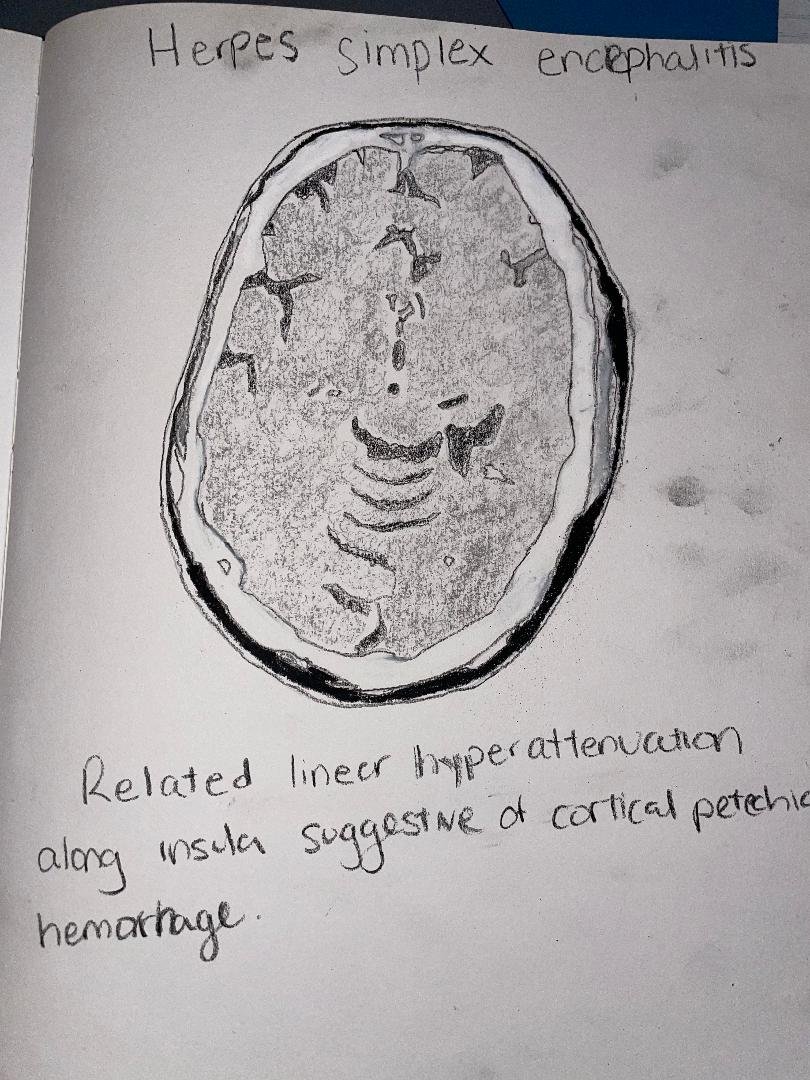 Herpes simplex encephalitis
Related linear hyperattenuation
along insula suggestive of cortical petechia
hemorrhage.